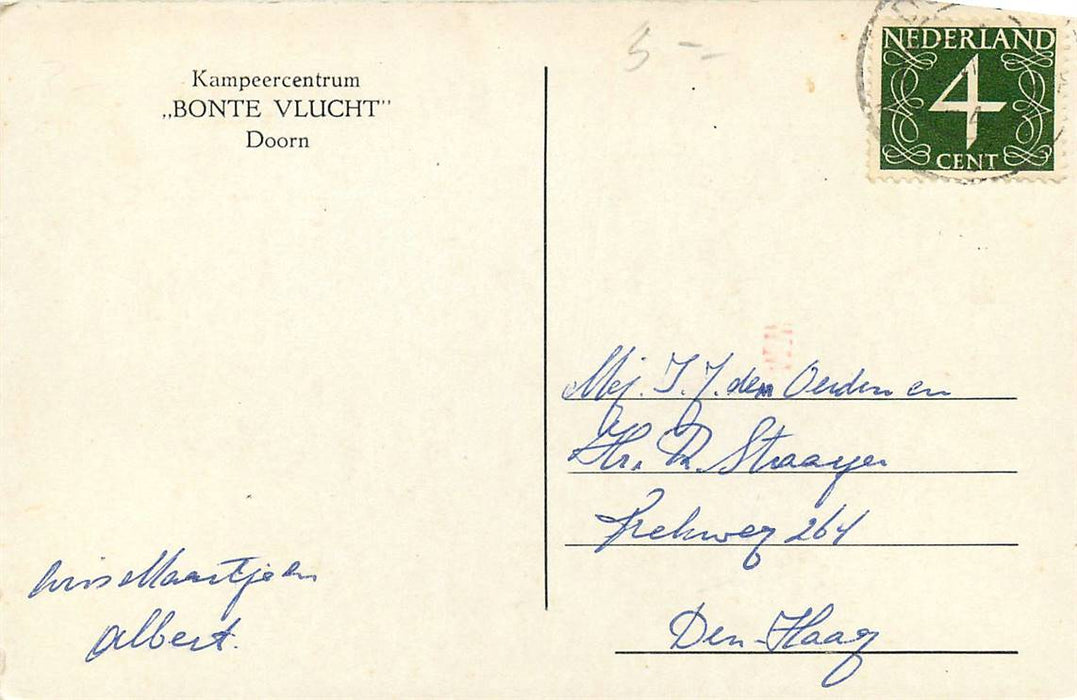 Kampeercentrum
„BONTE VLUCHT”
Doorn
5 --
NEDERLAND
4
CENT
Mej. J. J. den Ouden en
Hr. R. Straayer
264
Den-Haag
Maartje en
Albert.